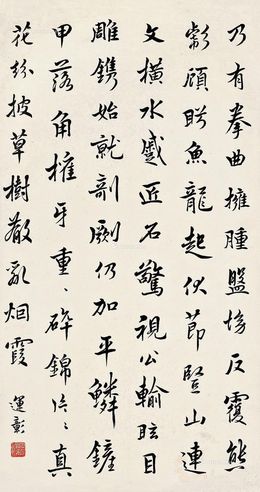 乃有拳曲擁腫盤坳反覆熊
彪顧盼魚龍起伏節豎山連
文橫水蹙匠石驚視公輸眩目
雕鐫始就剞劂仍加平鱗鏟
甲落角摧牙重〻碎錦片〻真
花紛披草樹散亂烟霞
運彰